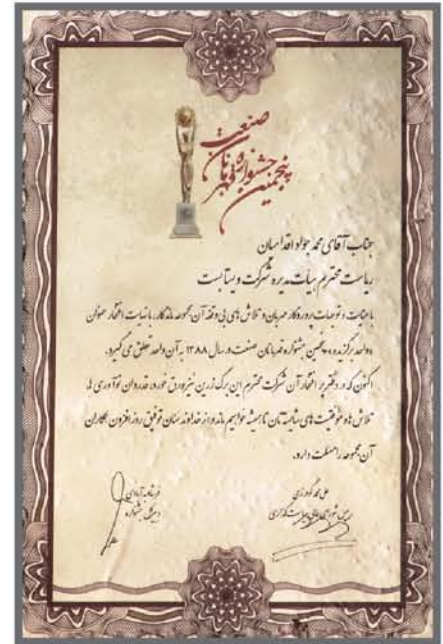 پنجمین جشنواره قهرمانان صنعت
جناب آقای محمد جواد اقداسیان
ریاست محترم هیأت مدیره شرکت ویستابست
با عنایت و توجهات پروردگار مهربان و تلاش های بی وقفه آن مجموعه ماندگار، با نهایت افتخار عنوان
«واحد برگزیده» پنجمین جشنواره قهرمانان صنعت در سال ۱۳۸۸ به آن واحد تعلق می گیرد.
اکنون که در دفتر پر افتخار آن شرکت محترم این برگ زرین نیز ورق خورد، قدردان نوآوری ها
تلاش ها و موفقیت های شایسته تان تا همیشه خواهیم ماند و از خداوند منان توفیق روز افزون همکاران
آن مجموعه را مسئلت دارد.
علی محمد گودرزی
دبیر کل جشنواره